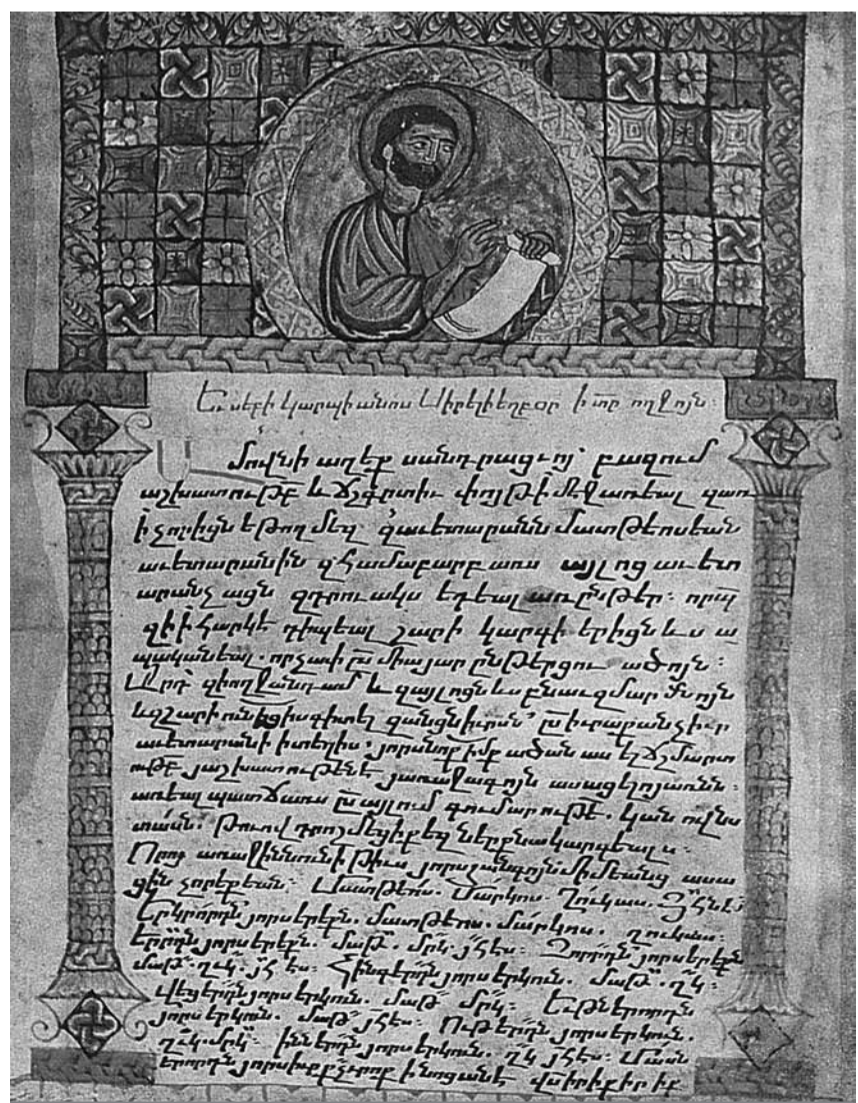 Եւսեբի կարպիանոս Սիրելի եղբօր ի տր ողջոյն։
Ամովնի աղեքսանդրացւոյ՝ բազում
աշխատութբ և ճշգրտիւ փոյթի մէջ առեալ զառ
ի չորիցն եթող մեզ զաւետարանն մատթէոսեան
աւետարանին զհամաբարբառս այլոց աւետ
արանչացն զդրուակս եդեալ առընթեր։ որպ
զի ի հարկէ դիպեալ շարի կարգի երիցն ևս ա
պականեալ. որչափ ըստ միայար ընթերցուածոյն։
Արդ զի ողջ անդամ և զայլոցն ևս բնաւ զմարմնոյն
և զշարի ունիցիս գիտել զանցն իւրոն՝ ըստ իւրաքանչիւր
աւետարանի ի տեղիս՝ յորանոք իմք ածան ասել ճշմարտ
ութբ յաշխատութենէ յառաջագոյն ասացելոյ առնն.
առեալ պատճառս ըստ այլում գումարութե. կանոնս
տասն. թուով դրոշմեցի քեզ ներքնակարգեալս։
Որոց առաջինն ունի թիւս յորս զնգոյն միմեանց ասա
ցին չորեքեան։ Մատթէոս. Մարկոս. Ղուկաս. Յհնէս
Երկրորդն յորս երեքն. մատթէոս. մարկոս. ղուկաս։
Երրդն յորս երեքն. մաթ. մրկ. յհես։ Չորրդն յորս երեքն
մաթ. ղկ. յհ ես։ Հինգերդն յորս երկուն. մաթ. ղկ։
վեցերդն յորս երկուն. մաթ մրկ։ Եւթներորդն
յորս երկուն. մաթ յհես։ Ութերդն յորս երկուն.
ղկ. մրկ։ Իններդն յորս երկուն. ղկ յհես։ Տասն
երորդն յորս